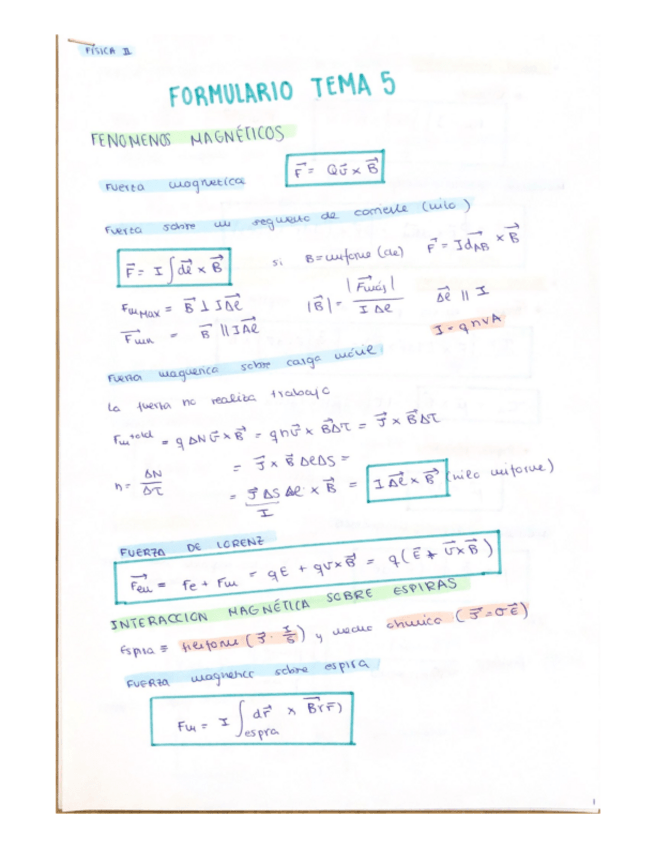 FÍSICA II
FORMULARIO TEMA 5
FENOMENOS MAGNÉTICOS
Fuerza magnetica F⃗ = Qv⃗ × B⃗
Fuerza sobre un segmento de corriente (hilo)
F⃗ = I ∫ dℓ⃗ × B⃗ si B = uniforme (cte) F⃗ = I d⃗AB × B⃗
FmMAX = B⃗ ⊥ IΔℓ⃗ |B⃗| = |F⃗máx| / I Δℓ Δℓ⃗ || I
F⃗min = B⃗ || IΔℓ⃗ I = qnvA
Fuerza magnetica sobre carga móvil
La fuerza no realiza trabajo
Fm total = q ΔN v⃗ × B⃗ = qnv⃗ × B⃗Δτ = J⃗ × B⃗Δτ
n = ΔN / Δτ = J⃗ × B⃗ ΔℓΔS =
= J⃗ ΔS Δℓ × B⃗ = I Δℓ⃗ × B⃗ (hilo uniforme)
I
FUERZA DE LORENZ
F⃗em = Fe + Fm = qE + qv × B⃗ = q(E⃗ + v⃗ × B⃗)
INTERACCION MAGNÉTICA SOBRE ESPIRAS
Espira ≡ filiforme (J⃗ = I/S) y medio ohmico (J⃗ = σE⃗)
FUERZA magnetica sobre espira
Fm = I ∫espira dr⃗ × B⃗(r⃗)
1